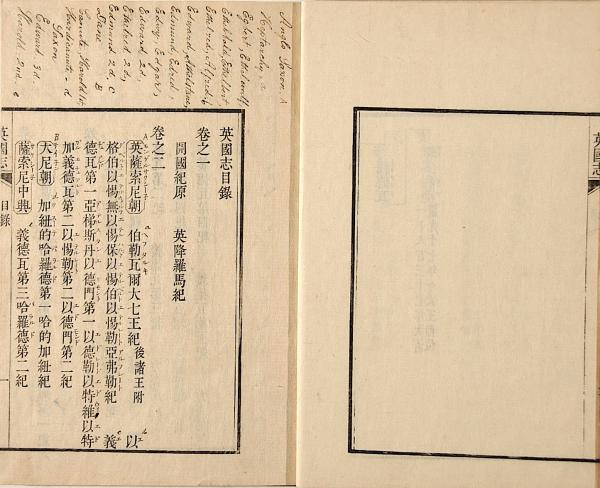 Anglo Saxon. A
Heptarchy, a
Egbert, Ethelwulf,
Ethelbald, Ethelbert,
Ethelred, Alfred. b
Edward, Athelstane,
Edmund, Edred,
Edwy, Edgar,
Edward 2d,
Ethelred 2d,
Edmund 2d, C
Dane B
Canute, Harold 1st,
Hardicanute - d
Saxon
Edward 3d.
Harold 2nd. e
英國志目錄
卷之一
開國紀原 英降羅馬紀
卷之二
英薩索尼朝 伯勒瓦爾大七王紀 後諸王附 以
格伯以惕無以惕保以惕伯以惕勒亞弗勒紀 義
德瓦第一亞梯斯丹以德門第一以德勒以特維以特
加義德瓦第二以惕勒第二以德門第二紀
天尼朝 加紐的哈羅德第一哈的加紐紀
薩索尼中興 義德瓦第三哈羅德第二紀
英國志
目錄
一
英國志